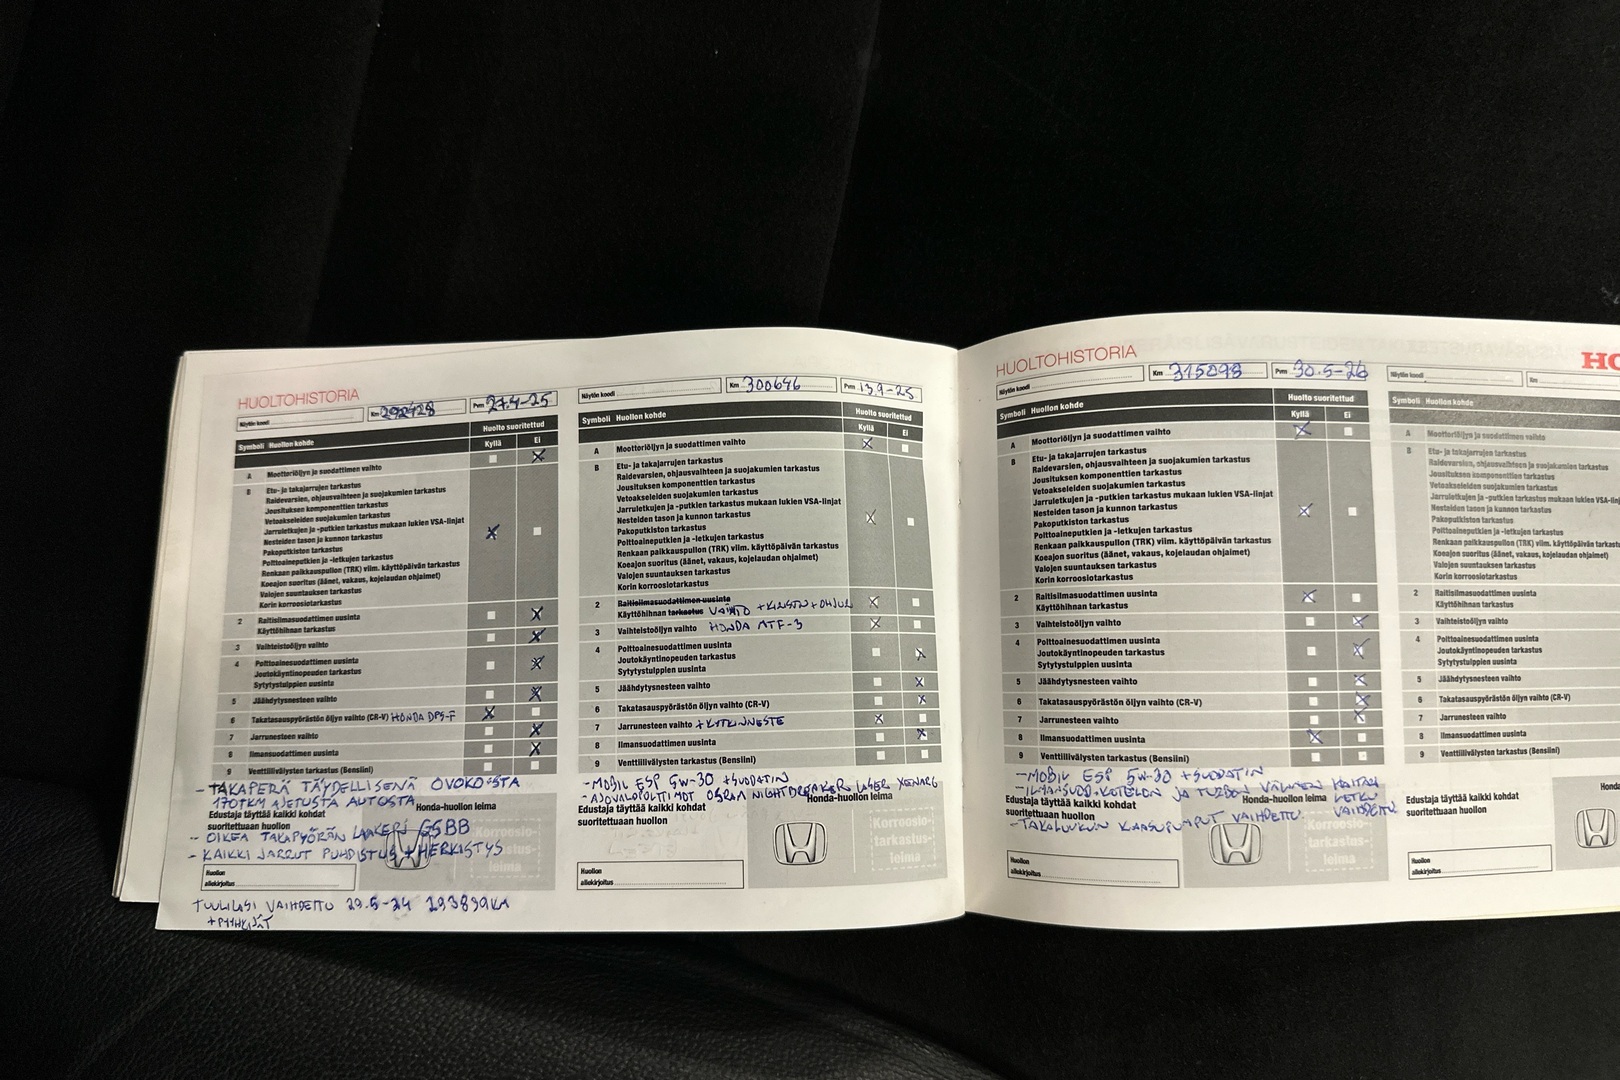 HUOLTOHISTORIA
Näytön koodi
Km 292428
Pvm 27.4-25
Symboli Huollon kohde
Huolto suoritettud
Kyllä Ei
A Moottoriöljyn ja suodattimen vaihto
B Etu- ja takajarrujen tarkastus
Raidevarsien, ohjausvaihteen ja suojakumien tarkastus
Jousituksen komponenttien tarkastus
Vetoakseleiden suojakumien tarkastus
Jarruletkujen ja -putkien tarkastus mukaan lukien VSA-linjat
Nesteiden tason ja kunnon tarkastus
Pakoputkiston tarkastus
Polttoaineputkien ja -letkujen tarkastus
Renkaan paikkauspullon (TRK) viim. käyttöpäivän tarkastus
Koeajon suoritus (äänet, vakaus, kojelaudan ohjaimet)
Valojen suuntauksen tarkastus
Korin korroosiotarkastus
2 Raitisilmasuodattimen uusinta
Käyttöhihnan tarkastus
3 Vaihteistoöljyn vaihto
4 Polttoainesuodattimen uusinta
Joutokäyntinopeuden tarkastus
Sytytystulppien uusinta
5 Jäähdytysnesteen vaihto
6 Takatasauspyörästön öljyn vaihto (CR-V) HONDA DPS-F
7 Jarrunesteen vaihto
8 Ilmansuodattimen uusinta
9 Venttiilivälysten tarkastus (Bensiini)
- TAKAPERÄ TÄYDELLISENÄ OVOKO:STA
170TKM AJETUSTA AUTOSTA
Honda-huollon leima
Edustaja täyttää kaikki kohdat
suoritettuaan huollon
- OIKEA TAKAPYÖRÄN LAAKERI GSBB
- KAIKKI JARRUT PUHDISTUS + HERKISTYS
Korroosio-
tarkastus-
leima
Huollon
allekirjoitus
TUULILASI VAIHDETTU 29.5-24 293899KM
+ PYYHKIJÄT
Näytön koodi
Km 300646
Pvm 13.9-25
Symboli Huollon kohde
Huolto suoritettud
Kyllä Ei
A Moottoriöljyn ja suodattimen vaihto
B Etu- ja takajarrujen tarkastus
Raidevarsien, ohjausvaihteen ja suojakumien tarkastus
Jousituksen komponenttien tarkastus
Vetoakseleiden suojakumien tarkastus
Jarruletkujen ja -putkien tarkastus mukaan lukien VSA-linjat
Nesteiden tason ja kunnon tarkastus
Pakoputkiston tarkastus
Polttoaineputkien ja -letkujen tarkastus
Renkaan paikkauspullon (TRK) viim. käyttöpäivän tarkastus
Koeajon suoritus (äänet, vakaus, kojelaudan ohjaimet)
Valojen suuntauksen tarkastus
Korin korroosiotarkastus
2 Raitisilmasuodattimen uusinta
Käyttöhihnan tarkastus VAIHTO + KIRISTIN + OHJUR
3 Vaihteistoöljyn vaihto HONDA MTF-3
4 Polttoainesuodattimen uusinta
Joutokäyntinopeuden tarkastus
Sytytystulppien uusinta
5 Jäähdytysnesteen vaihto
6 Takatasauspyörästön öljyn vaihto (CR-V)
7 Jarrunesteen vaihto + KYTKINNESTE
8 Ilmansuodattimen uusinta
9 Venttiilivälysten tarkastus (Bensiini)
- MOBIL ESP 5W-30 + SUODATIN
- AJOVALOPOLTTIMOT OSRAM NIGHTBREAKER LASER XENARC
Honda-huollon leima
Edustaja täyttää kaikki kohdat
suoritettuaan huollon
Korroosio-
tarkastus-
leima
Huollon
allekirjoitus
HUOLTOHISTORIA
Näytön koodi
Km 315098
Pvm 30.5-26
Symboli Huollon kohde
Huolto suoritettud
Kyllä Ei
A Moottoriöljyn ja suodattimen vaihto
B Etu- ja takajarrujen tarkastus
Raidevarsien, ohjausvaihteen ja suojakumien tarkastus
Jousituksen komponenttien tarkastus
Vetoakseleiden suojakumien tarkastus
Jarruletkujen ja -putkien tarkastus mukaan lukien VSA-linjat
Nesteiden tason ja kunnon tarkastus
Pakoputkiston tarkastus
Polttoaineputkien ja -letkujen tarkastus
Renkaan paikkauspullon (TRK) viim. käyttöpäivän tarkastus
Koeajon suoritus (äänet, vakaus, kojelaudan ohjaimet)
Valojen suuntauksen tarkastus
Korin korroosiotarkastus
2 Raitisilmasuodattimen uusinta
Käyttöhihnan tarkastus
3 Vaihteistoöljyn vaihto
4 Polttoainesuodattimen uusinta
Joutokäyntinopeuden tarkastus
Sytytystulppien uusinta
5 Jäähdytysnesteen vaihto
6 Takatasauspyörästön öljyn vaihto (CR-V)
7 Jarrunesteen vaihto
8 Ilmansuodattimen uusinta
9 Venttiilivälysten tarkastus (Bensiini)
- MOBIL ESP 5W-30 + SUODATIN
- ILMANSUOD.KOTELON JA TURBON VÄLINEN HAITARI
LETKU
VAIHDETTU
Honda-huollon leima
Edustaja täyttää kaikki kohdat
suoritettuaan huollon
- TAKALUUKUN KAASUPUMPUT VAIHDETTU
Korroosio-
tarkastus-
leima
Huollon
allekirjoitus
HO
Näytön koodi
Km
Symboli Huollon kohde
A Moottoriöljyn ja suodattimen vaihto
B Etu- ja takajarrujen tarkastus
Raidevarsien, ohjausvaihteen ja suojakumien tarkastus
Jousituksen komponenttien tarkastus
Vetoakseleiden suojakumien tarkastus
Jarruletkujen ja -putkien tarkastus mukaan lukien VSA-lin
Nesteiden tason ja kunnon tarkastus
Pakoputkiston tarkastus
Polttoaineputkien ja -letkujen tarkastus
Renkaan paikkauspullon (TRK) viim. käyttöpäivän tarkastu
Koeajon suoritus (äänet, vakaus, kojelaudan ohjaimet)
Valojen suuntauksen tarkastus
Korin korroosiotarkastus
2 Raitisilmasuodattimen uusinta
Käyttöhihnan tarkastus
3 Vaihteistoöljyn vaihto
4 Polttoainesuodattimen uusinta
Joutokäyntinopeuden tarkastus
Sytytystulppien uusinta
5 Jäähdytysnesteen vaihto
6 Takatasauspyörästön öljyn vaihto (CR-V)
7 Jarrunesteen vaihto
8 Ilmansuodattimen uusinta
9 Venttiilivälysten tarkastus (Bensiini)
Honda
Edustaja täyttää kaikki kohdat
suoritettuaan huollon
Huollon
allekirjoitus